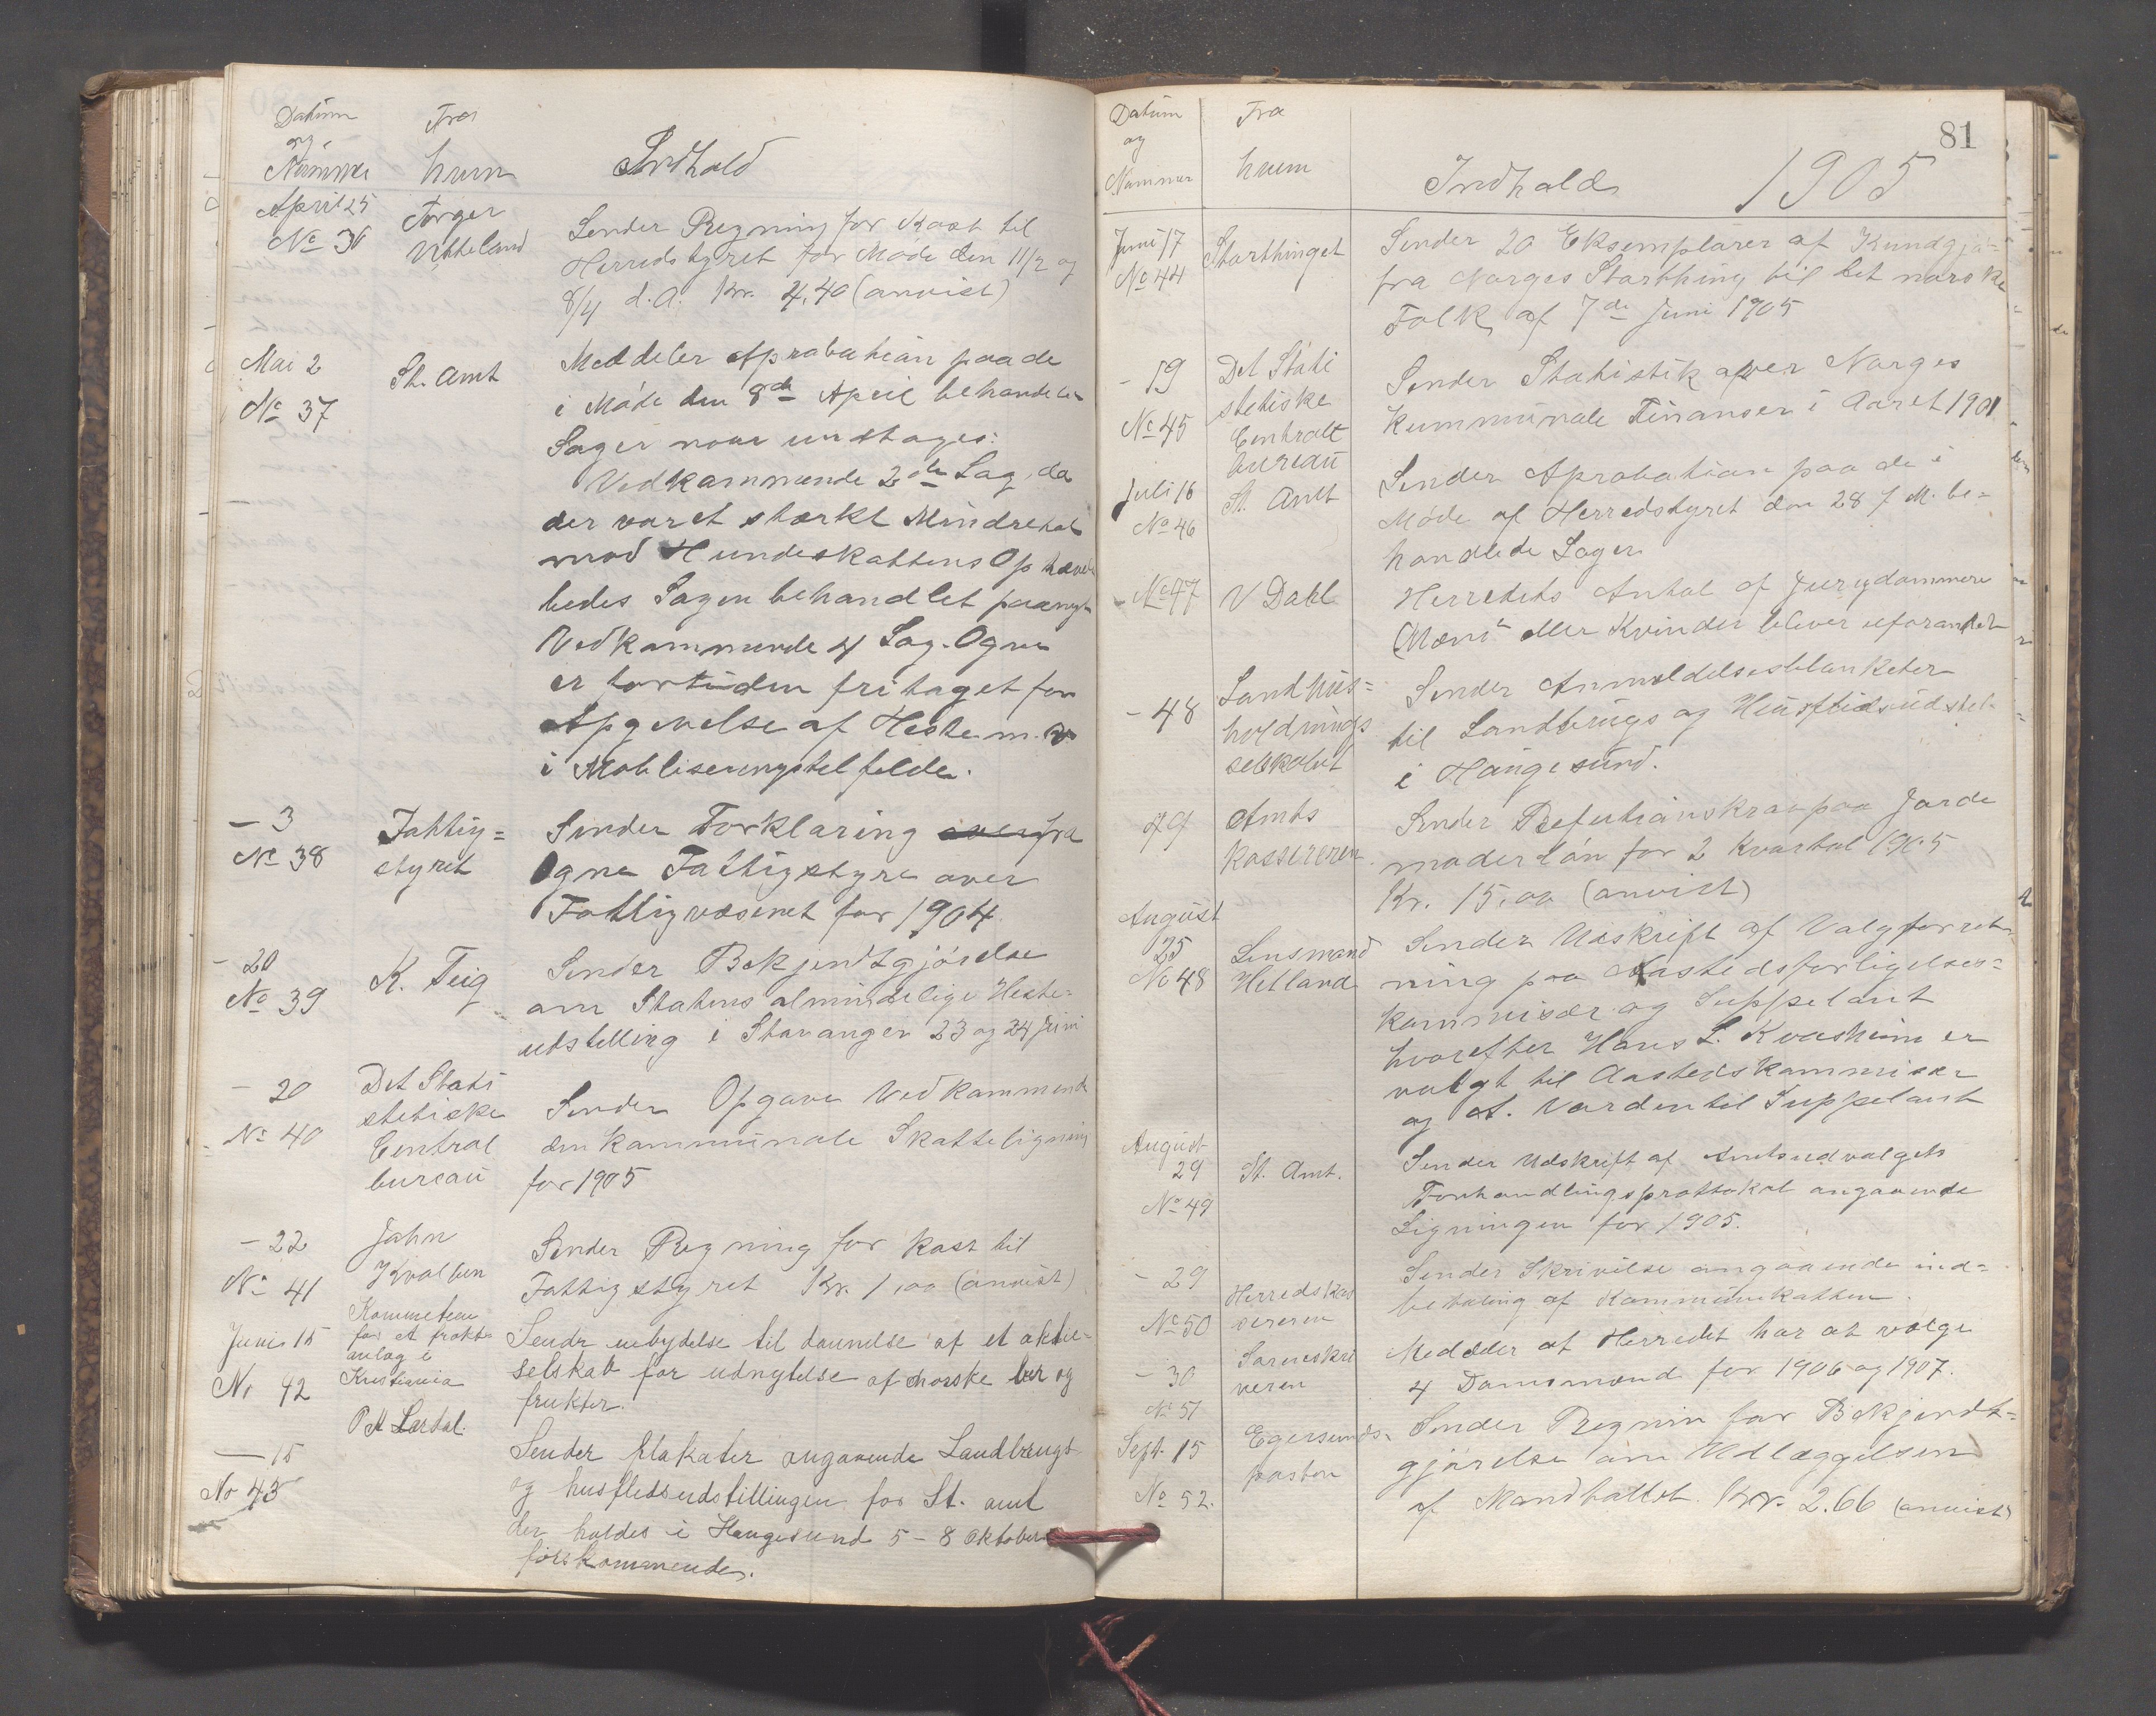 Datum Fra
og
Nummer hvem Indhold
April 25 Torger
No 36 Vetteland
Sender Regning for Kost til
Herredstyret for Møde den 11/2 og
8/4 d. A. Kr. 4,40 (anvist)
Mai 2 St. Amt
No 37
Meddeler Aprobation paa de
i Møde den 8de April behandlede
Sager naar undtages:
Vedkommende 2den Sag, da
der var et stærkt Mindretal
mod Hundeskattens Ophæve
bedes Sagen behandlet paany
Vedkommende 4 Sag. Ogne
er fortiden fritaget for
Afgivelse af Heste m. v
i Mobliseringstelfelde.
– 3 Fattig=
No 38 styret
Sender Forklaring over fra
Ogne Fattigstyre over
Fattigvæsenet for 1904.
– 20
No 39 K. Teig
Sender Bekjendtgjórelse
om Statens almindelige Heste=
udstelling i Stavanger 23 og 24 Juni
– 20 Det Stati
No 40 stetiske
Central
bureau
Sender Opgave Vedkommende
den kommunale Skatteligning
for 1905
– 22 John
No 41 Kvalben
Sender Regning for Kost til
Fattigstyret Kr. 1,00 (anvist)
Juni 15 Kommeteen
No 42 for et frukt=
anlæg i
Kristiania
P A Lærdal.
Sendr inbydelse til dannelse af et aktie=
selskab for udnytelse af norske bær og
frukter.
– 15
No 43
Sender plakater angaaende Landbrugs
og husflidsudstillingen for St. amt
der holdes i Haugesund 5 – 8 Oktober
førstkommende.
81
Datum Fra
og
Nummer hvem Indhold 1905
Juni 17 Storthinget
No 44
Sender 20 Eksemplarer af Kundgjø=
fra Norges Storthing til det norske
Folk af 7de Juni 1905
– 19 Det Stati
No 45 stetiske
Centralt
bureau
Sender Statistik over Norges
Kummunale Finanser i Aaret 1901
Juli 16 St. Amt
No 46
Sender Aprobation paa de i
Møde af Herredstyret den 28 f. M. be=
handlede Sager
– No 47 V Dahl
Herredets Antal af Jurydommere
Mænd eller Kvinder bliver uforandret
– 48 Landhus=
holdnings
selskabet
Sender Anmeldelsesblanketer
til Landbrugs og Husflidsudstel.
i Haugesund.
49 Amts
kassereren
Sender Refutionskrav paa Jorde
moderlón for 2 Kvartal 1905
Kr. 15,00 (anvist)
August
25 Lensmand
No 48 Hetland
Sender Udskrift af Valgforret=
ning paa Aastedsforligelses=
kommisær og Suppelant
hvorefter Hans L. Kvasheim er
valgt til Aastedskommisær
og A. Varden til Suppelant
August
29 St. Amt.
No 49
Sender Udskrift af Amtsudvalgets
Forhandlingsprottokol angaaende
Ligningen for 1905.
– 29 Herredskas
No 50 sereren
Sender Skrivelse angaaende ind=
betaling af Kommuneskatten.
– 30 Sorenskri
No 51 veren
Meddeler at Herredet har at vælge
4 Domsmænd for 1906 og 1907.
Sept. 15 Egersunds=
No 52. posten
Sender Regnin for Bekjendt=
gjórelse om Udlæggelsen
af Mandtallet. Kr. 2.66 (anvist)